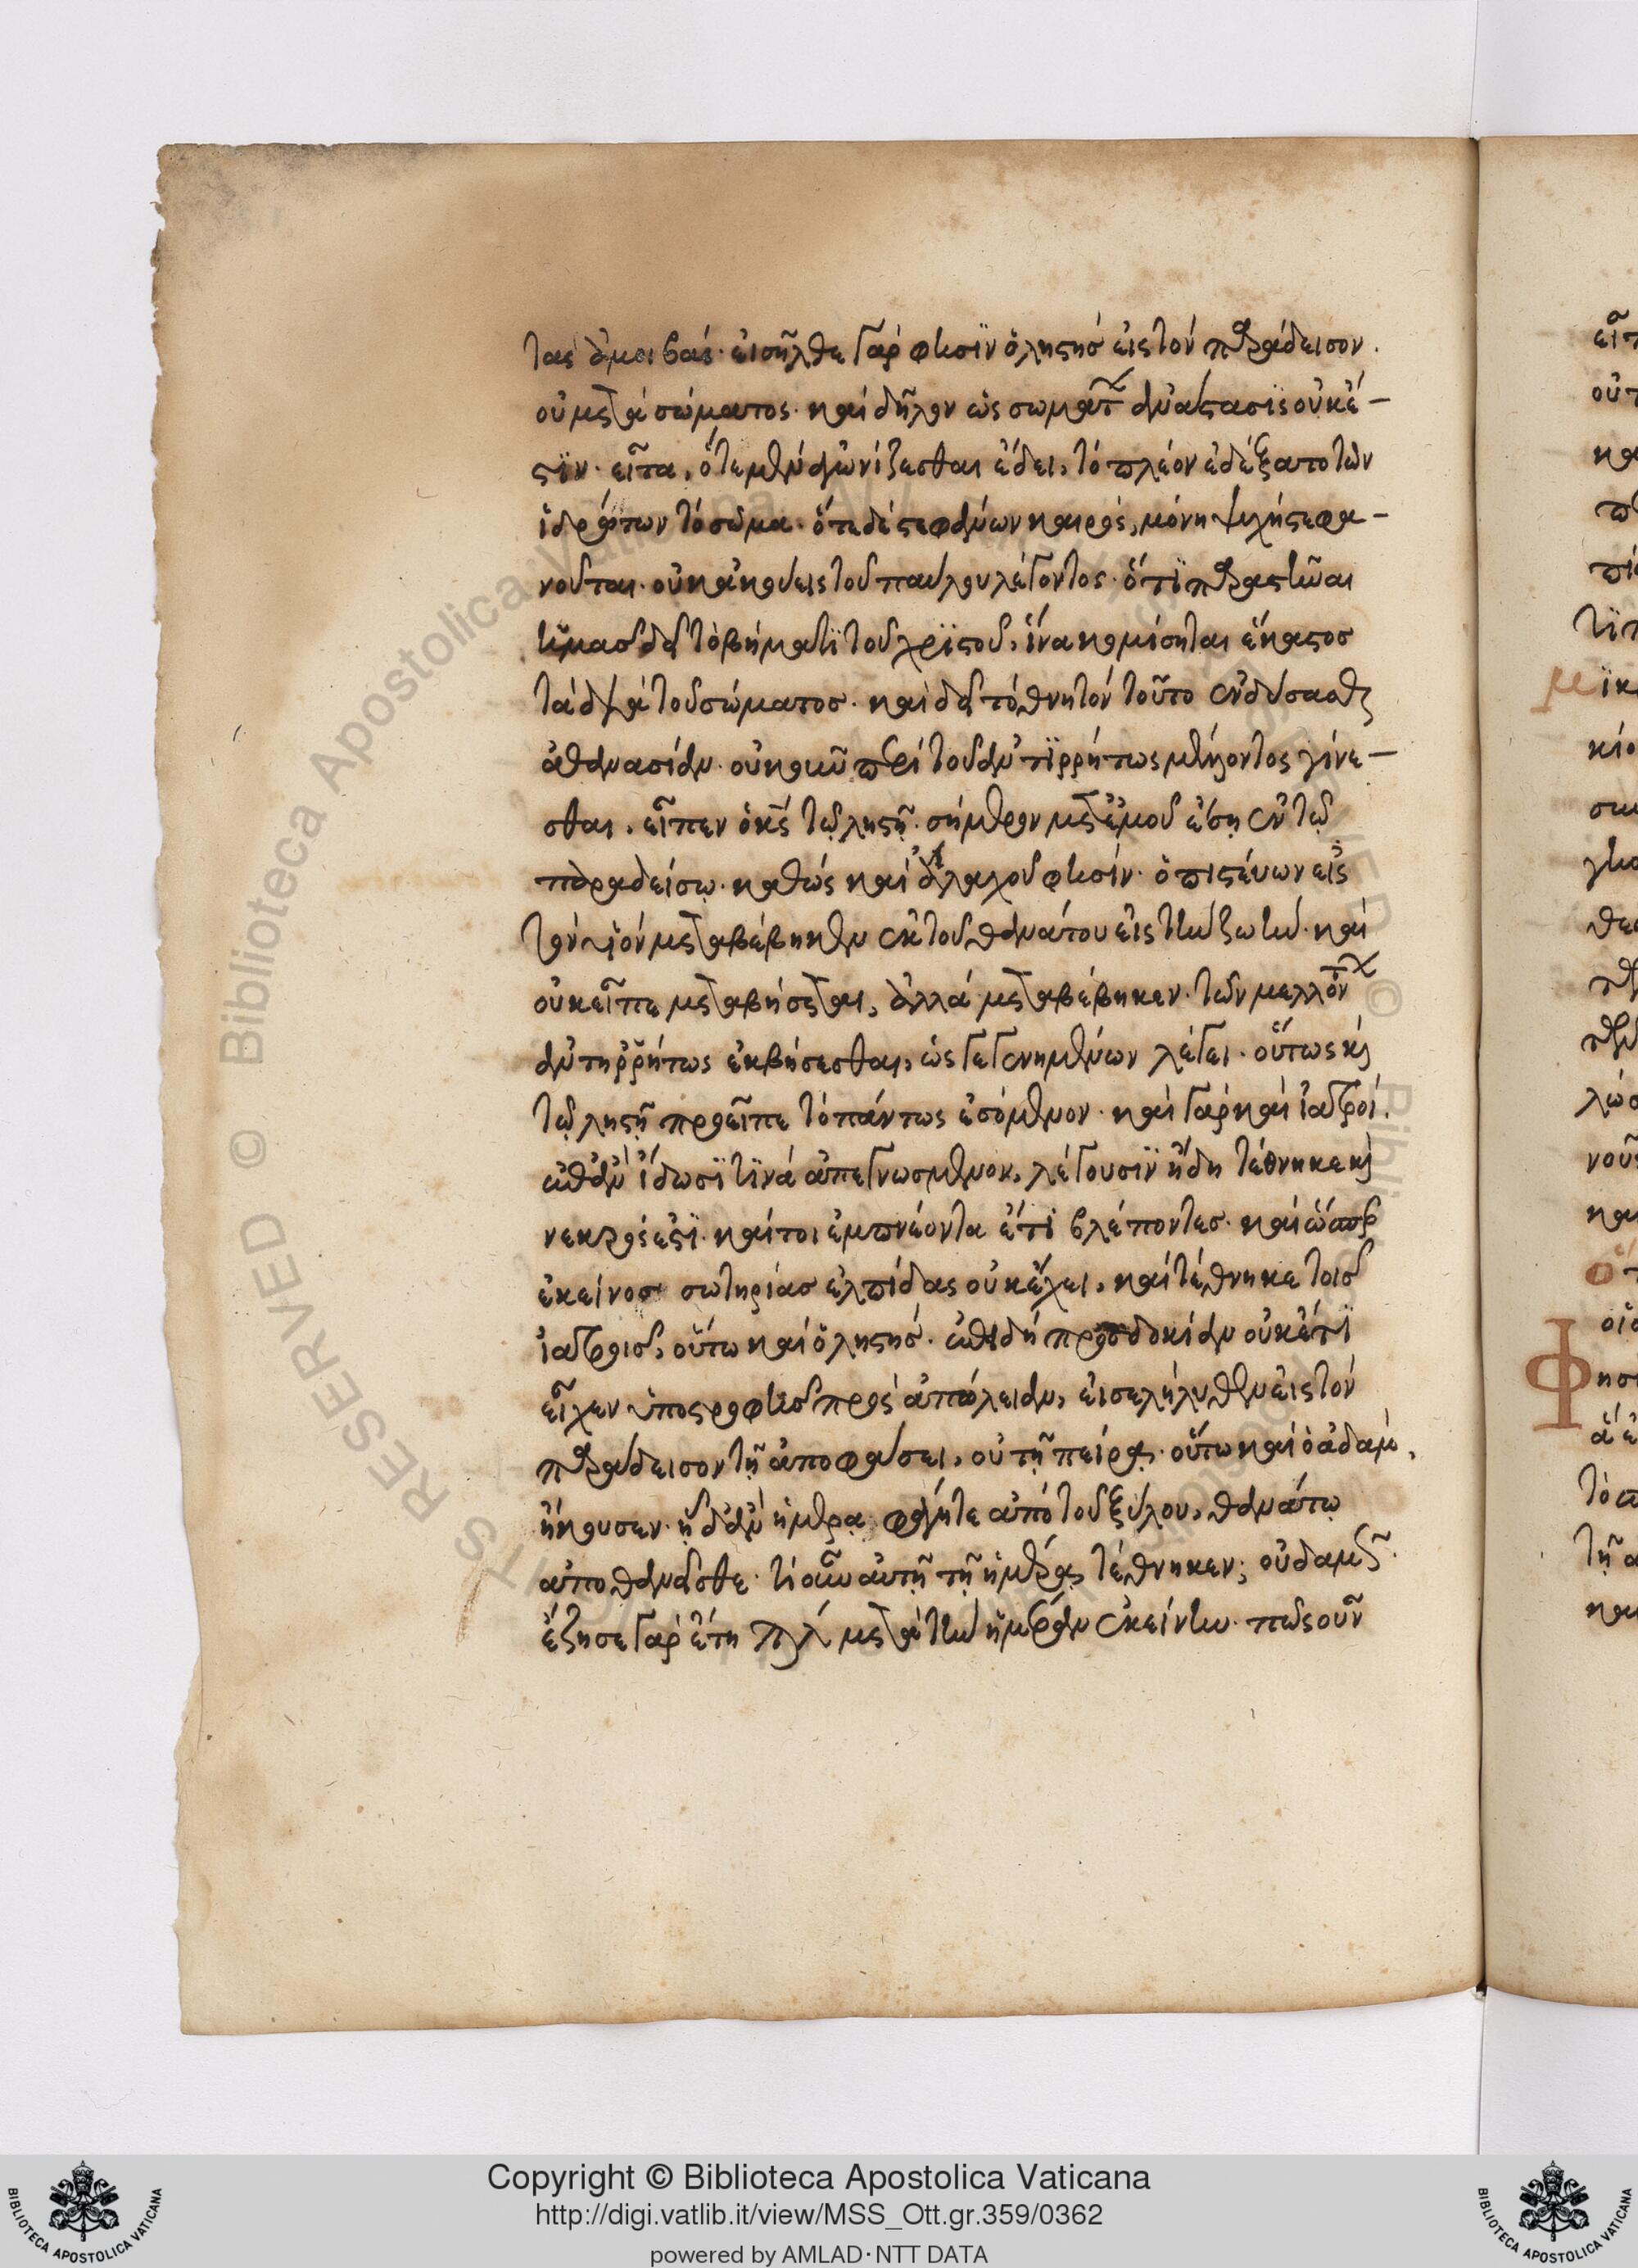 τας ἀμοιβάς· εἰσῆλθε γάρ φησϊν ὁ ληστής εἰς τόν παράδεισον.
οὐ μετά σώματος· καί δῆλον ὡς σωμάτων ἀνάστασϊς οὐκ έ-
στϊν· εἶτα, ὅτε μέν ἀγωνίζεσθαι ἔδει, τό πλέον ἐδέξατο τῶν
ἱδρώτων τό σῶμα· ὅτε δέ στεφάνων καιρός, μόνη ψυχή στεφα-
νοῦται· οὐκ ἀκούεις τοῦ παύλου λέγοντος· ὅτϊ παραστῆναι
ἡμᾶς δεῖ τὸ βήματϊ τοῦ χρϊστοῦ, ἵνα κομίσηται ἕκαστος
τά διά τοῦ σώματος· καὶ δεῖ τό θνητόν τοῦτο ἐνδύσασθαι
ἀθανασίαν· οὐκοῦν περί τοῦ ἀντϊρρήτως μέλλοντος γίνε-
σθαι. εἶπεν ὁ κς τῷ ληστῇ· σήμερον μετ ἐμοῦ ἔσῃ ἐν τῷ
παραδείσῳ· καθώς καί ἀλλαχοῦ φησίν· ὁ πιστεύων εἰς
τόν υἱόν μεταβέβηκεν ἐκ τοῦ θανάτου εἰς τήν ζωήν· καί
οὐκ εἶπε μεταβήσεται, ἀλλά μεταβέβηκεν· τῶν μελλόντων
ἀντηρρήτως ἐκβήσεσθαι, ὡς γεγενημένων λέγει· οὕτως καὶ
τῷ ληστῇ προεῖπε τό πάντως ἐσόμενον· καί γάρ καί ἰατροί.
ἐπάν ἴδωσϊ τϊνά ἀπεγνωσμένον, λέγουσϊν ἤδη τέθνηκε καὶ
νεκρός ἐστϊ· καίτοι ἐμπνέοντα ἔτϊ βλέποντες· καί ὥσπερ
ἐκείνος σωτηρίας ἐλπίδας οὐκ ἔχει, καί τέθνηκε τοῖς
ἰατροῖς, οὕτω καί ὁ ληστής· ἐπειδή προσδοκίαν οὐκέτϊ
εἶχεν ὑποστροφῆς πρός ἀπώλειαν, εἰσελήλυθεν εἰς τόν
παράδεισον τῇ ἀποφάσει, οὐ τῇ πείρᾳ· οὕτω καί ὁ ἀδαμ.
ἤκουσεν· ᾗ δ' ἀν ἡμέρᾳ φάγητε ἀπό τοῦ ξύλου, θανάτῳ
ἀποθανεῖσθε· τί οὖν αὐτῇ τῇ ἡμέρᾳ τέθνηκεν; οὐδαμῶς·
ἔζησε γάρ ἔτη μετά τήν ἡμέραν ἐκείνην· πῶς οὖν
Copyright © Biblioteca Apostolica Vaticana
http://digi.vatlib.it/view/MSS_Ott.gr.359/0362
powered by AMLAD·NTT DATA